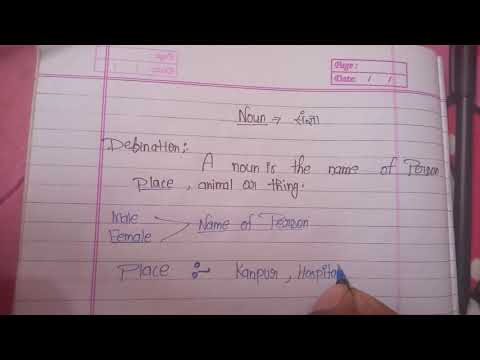 Page :
Date: / /
Noun → संज्ञा
Defination:-
A noun is the name of Person
Place, animal or thing.
Male
Female
Name of Person
Place :- Kanpur, Hospita